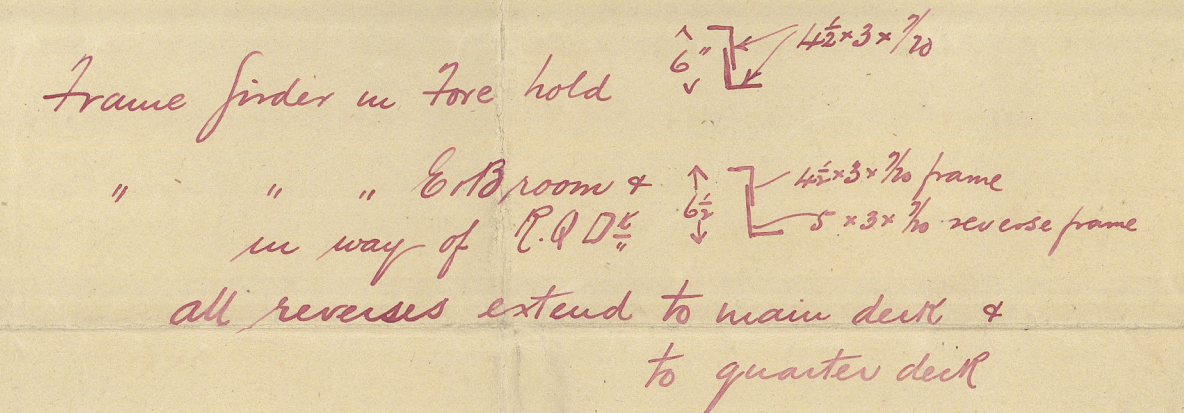 Frame girder in Fore hold 6" 4½ × 3 × 7/20
" " " E & B room & 6½ 4½ × 3 × 7/20 frame
in way of R.Q Dk 5 × 3 × 7/20 reverse frame
all reverses extend to main deck &
to quarter deck